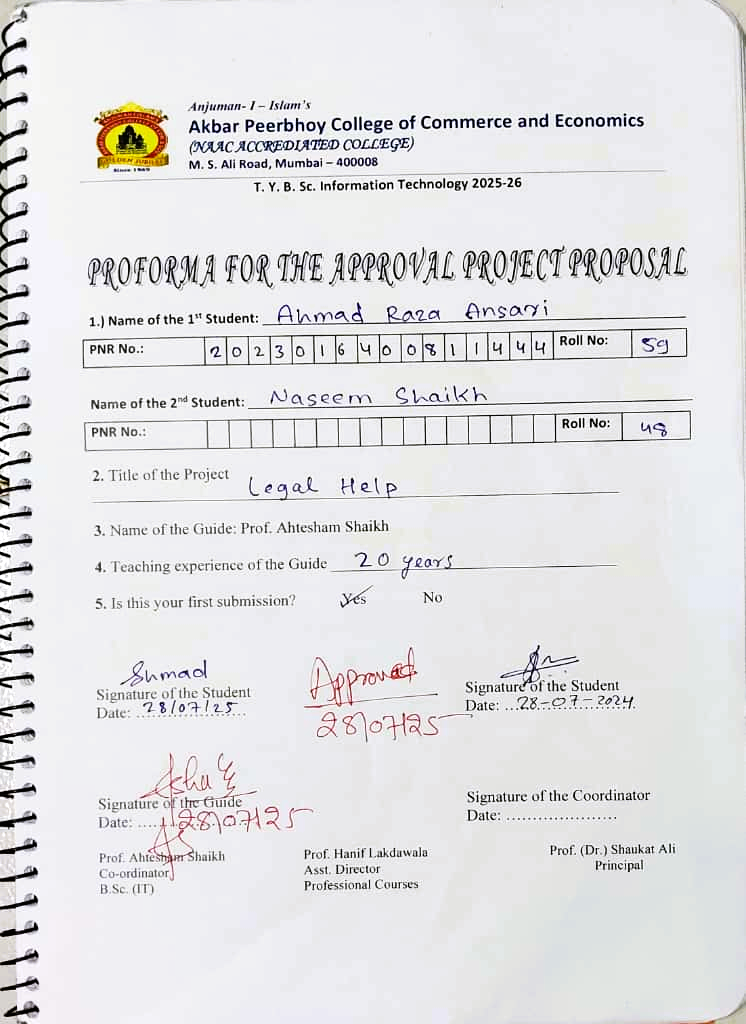 Anjuman- I – Islam's
Akbar Peerbhoy College of Commerce and Economics
(NAAC ACCREDIATED COLLEGE)
M. S. Ali Road, Mumbai – 400008
GOLDEN JUBILEE
Since 1969
T. Y. B. Sc. Information Technology 2025-26
PROFORMA FOR THE APPROVAL PROJECT PROPOSAL
1.) Name of the 1st Student: Ahmad Raza Ansari
PNR No.: 2023016400811444 Roll No: 59
Name of the 2nd Student: Naseem Shaikh
PNR No.: Roll No: 48
2. Title of the Project Legal Help
3. Name of the Guide: Prof. Ahtesham Shaikh
4. Teaching experience of the Guide 20 years
5. Is this your first submission? Yes No
Approved
28/07/25
Signature of the Student
Date: 28/07/25
Signature of the Student
Date: 28-07-2024
Signature of the Guide
Date: 28/07/25
Signature of the Coordinator
Date: .....................
Prof. Ahtesham Shaikh
Co-ordinator
B.Sc. (IT)
Prof. Hanif Lakdawala
Asst. Director
Professional Courses
Prof. (Dr.) Shaukat Ali
Principal